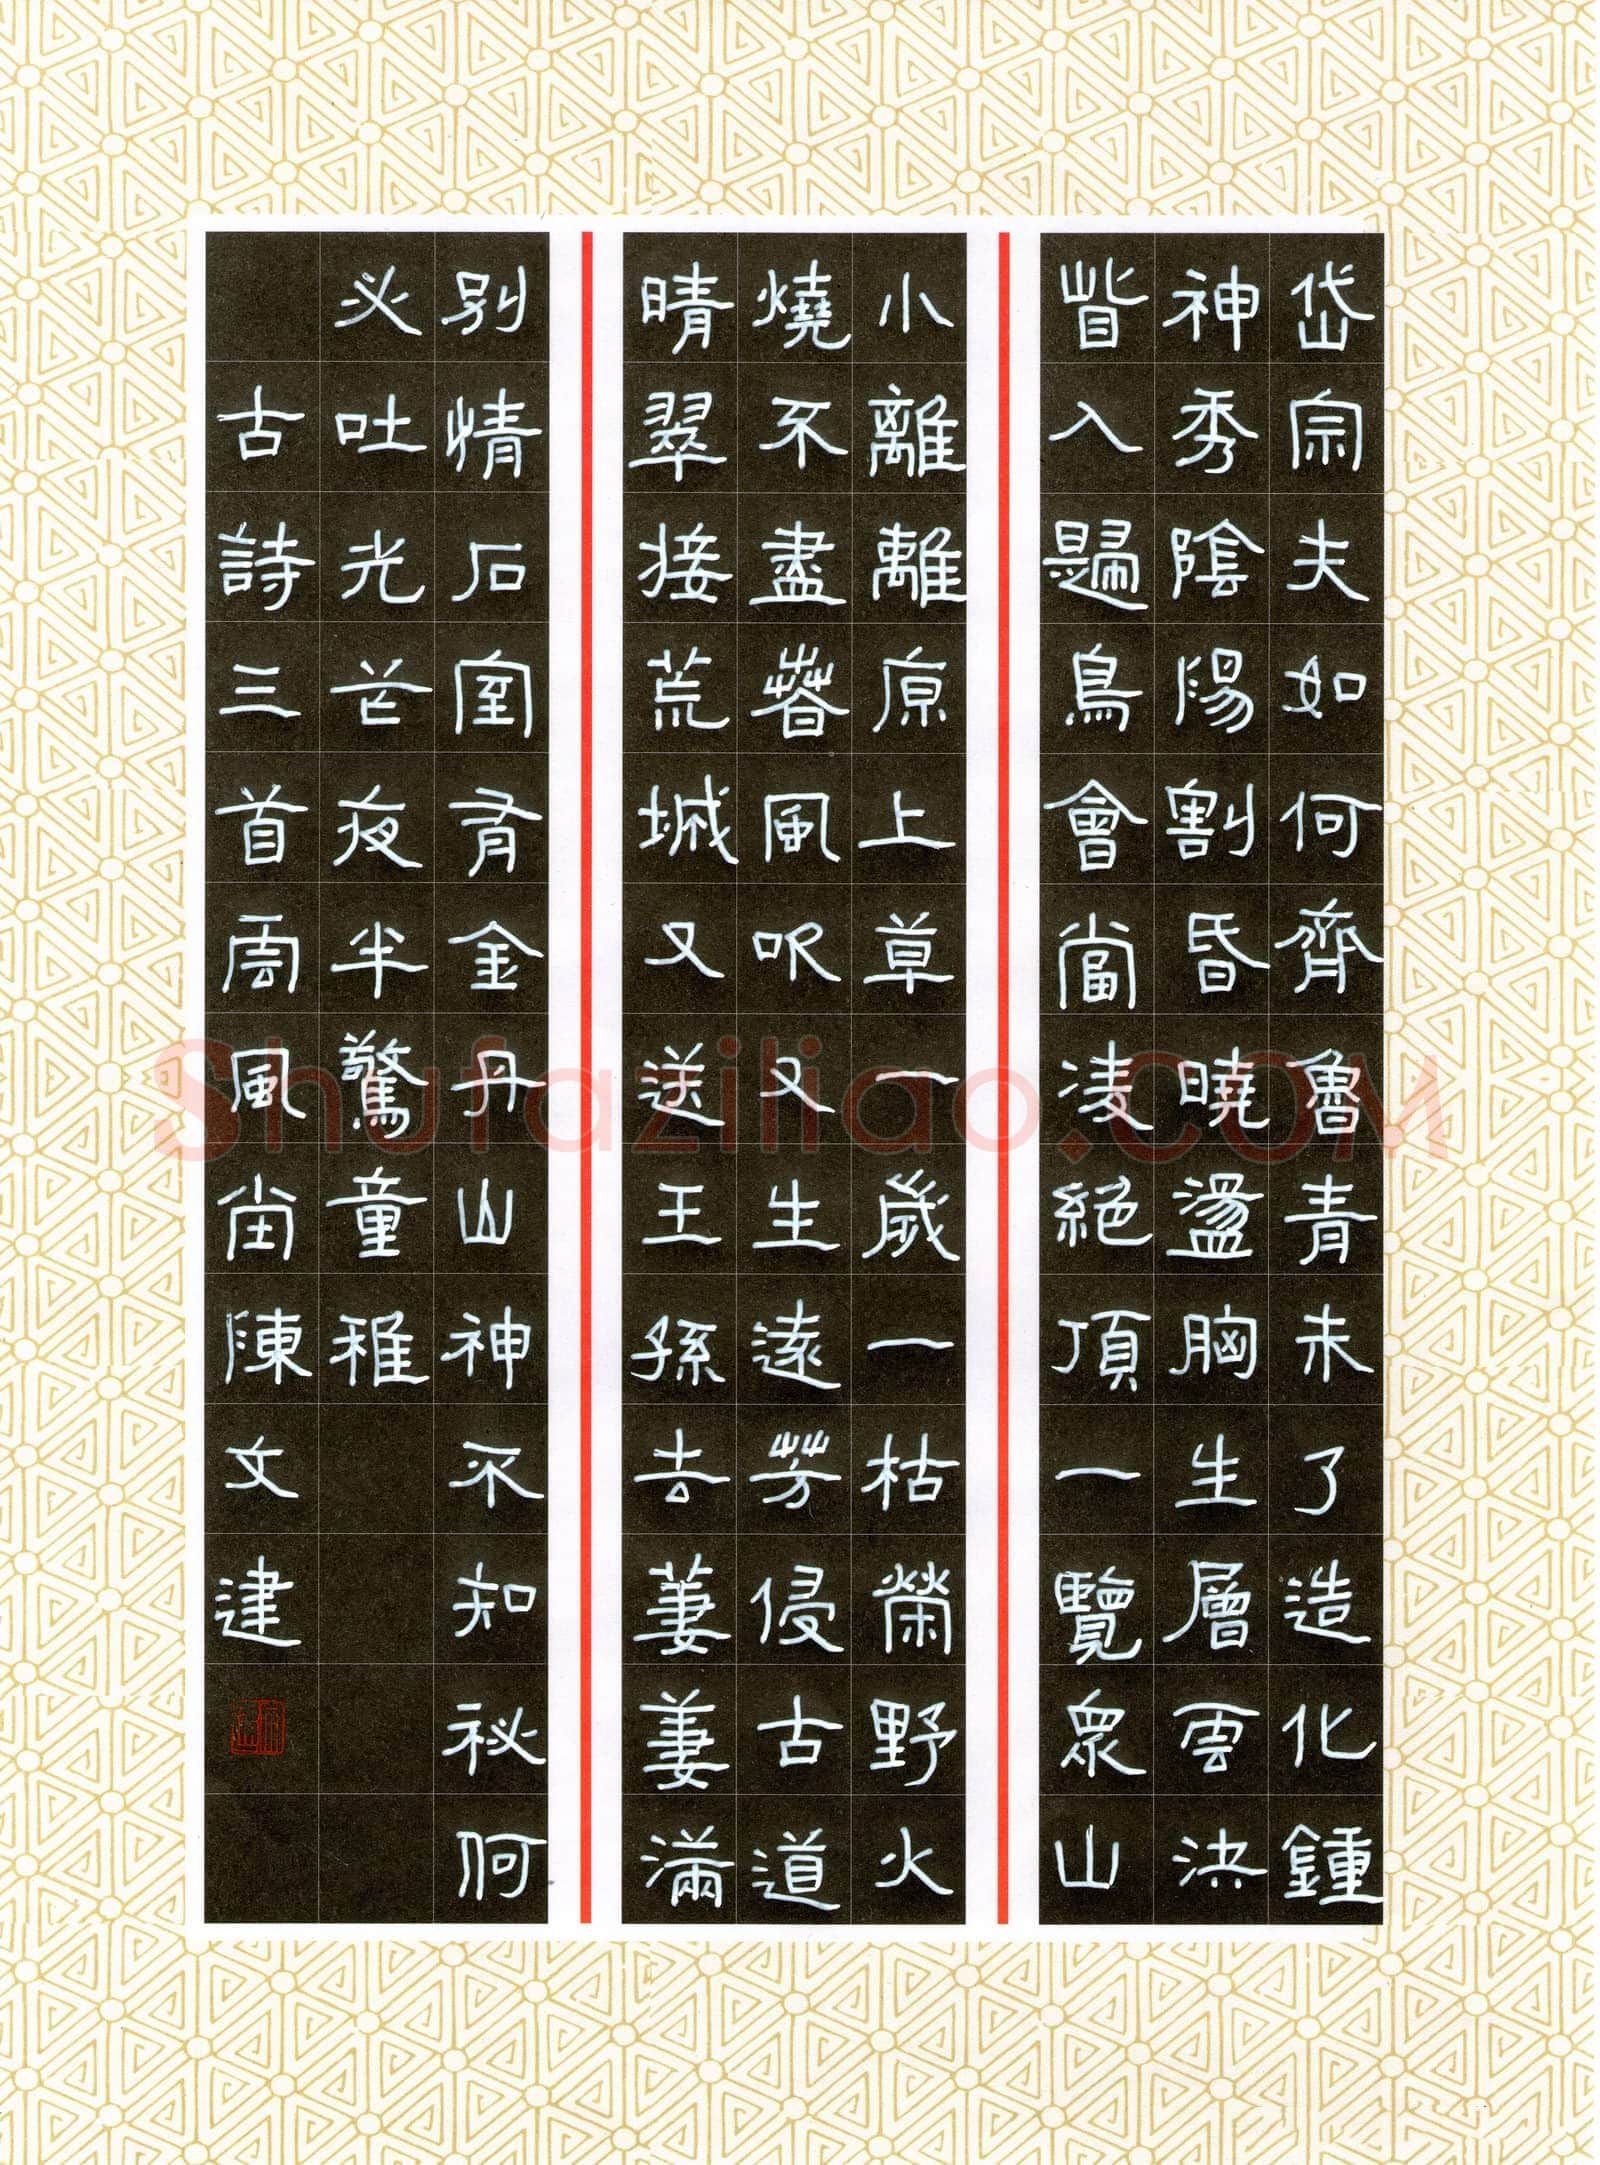 岱宗夫如何齊魯青未了造化鍾
神秀陰陽割昏曉盪胸生層雲決
眥入歸鳥會當凌絕頂一覽眾山
小離離原上草一歲一枯榮野火
燒不盡春風吹又生遠芳侵古道
晴翠接荒城又送王孫去萋萋滿
別情石室有金丹山神不知祕何
必吐光芒夜半驚童稚
古詩三首雲風陳文建
Shufaziliao.COM